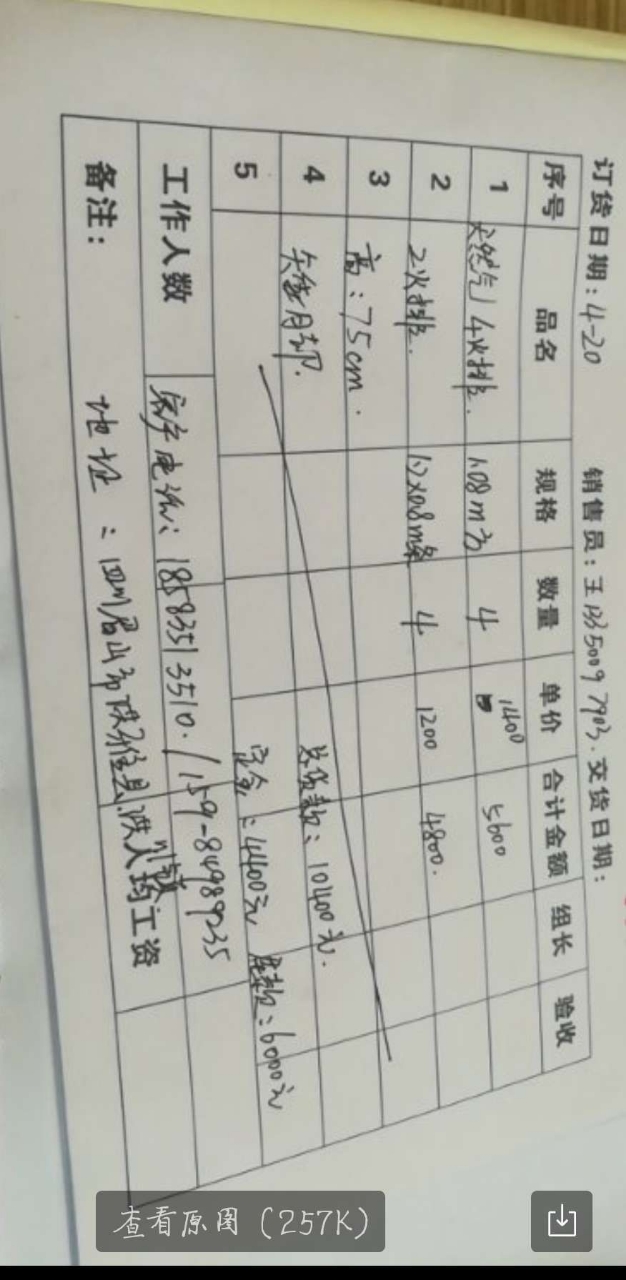 订货日期：4-20 销售员：王133 5009 7903. 交货日期：
序号 品名 规格 数量 单价 合计金额 组长 验收
1 天然气 4火排. 1.08m 4 1400 5600
2 2火排. 0.8m 4 1200 4800.
3 高：75cm.
4
总货款：10400元.
5 定金：4400元 尾款：6000元
工作人数 客户电话：18583513510. / 159-84989235 人均工资
备注： 地址：四川眉山市
查看原图（257K）